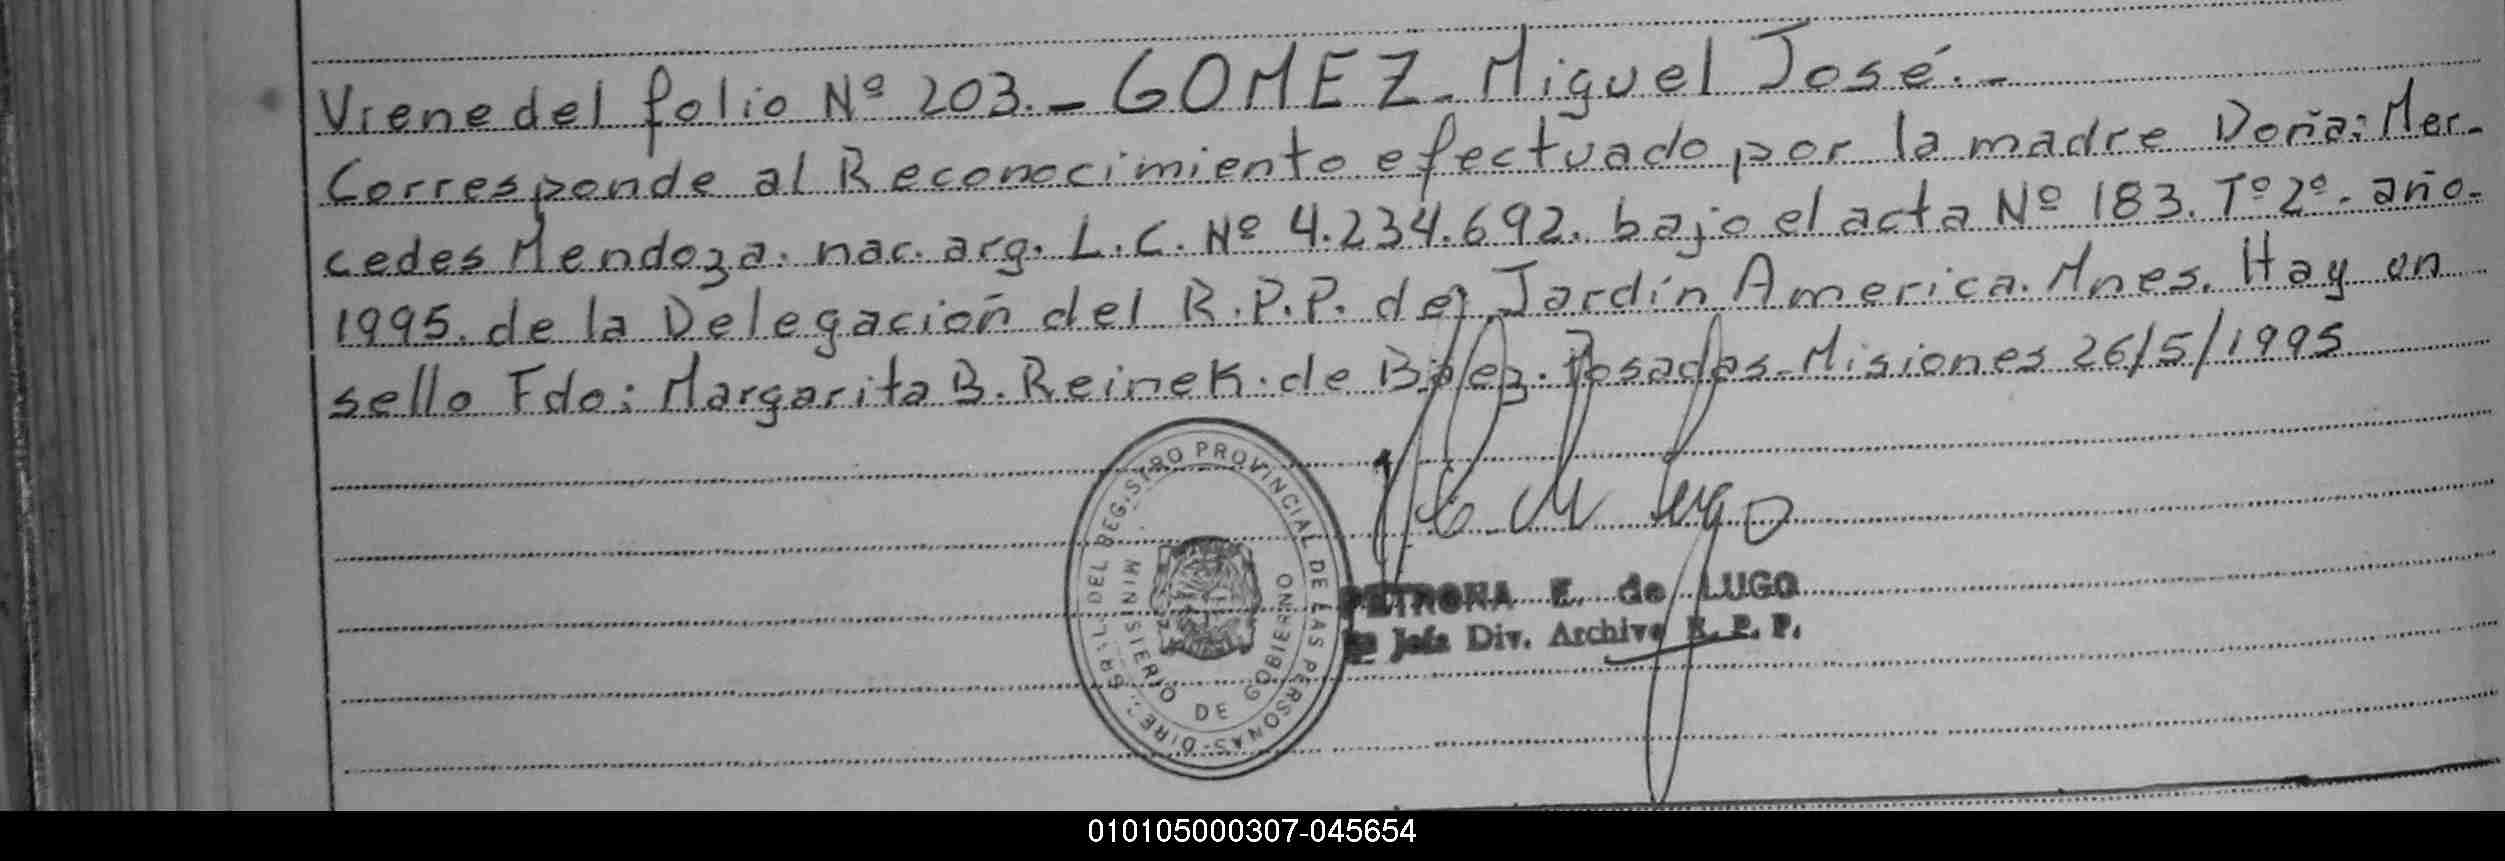 Viene del folio Nº 203.- GOMEZ- Miguel José.-
Corresponde al Reconocimiento efectuado por la madre Doña: Mer-
cedes Mendoza. nac. arg. L.C. Nº 4.234.692. bajo el acta Nº 183. Tº 2º. año.
1995. de la Delegación del R.P.P. de Jardín America. Mnes. Hay un
sello Fdo: Margarita B. Reinek. de Posadas-Misiones 26/5/1995
DEL REGISTRO PROVINCIAL DE LAS PERSONAS-
MINISTERIO DE GOBIERNO
PETRONA E. de LUGO
Jefa Div. Archivo R. P. P.
010105000307-045654